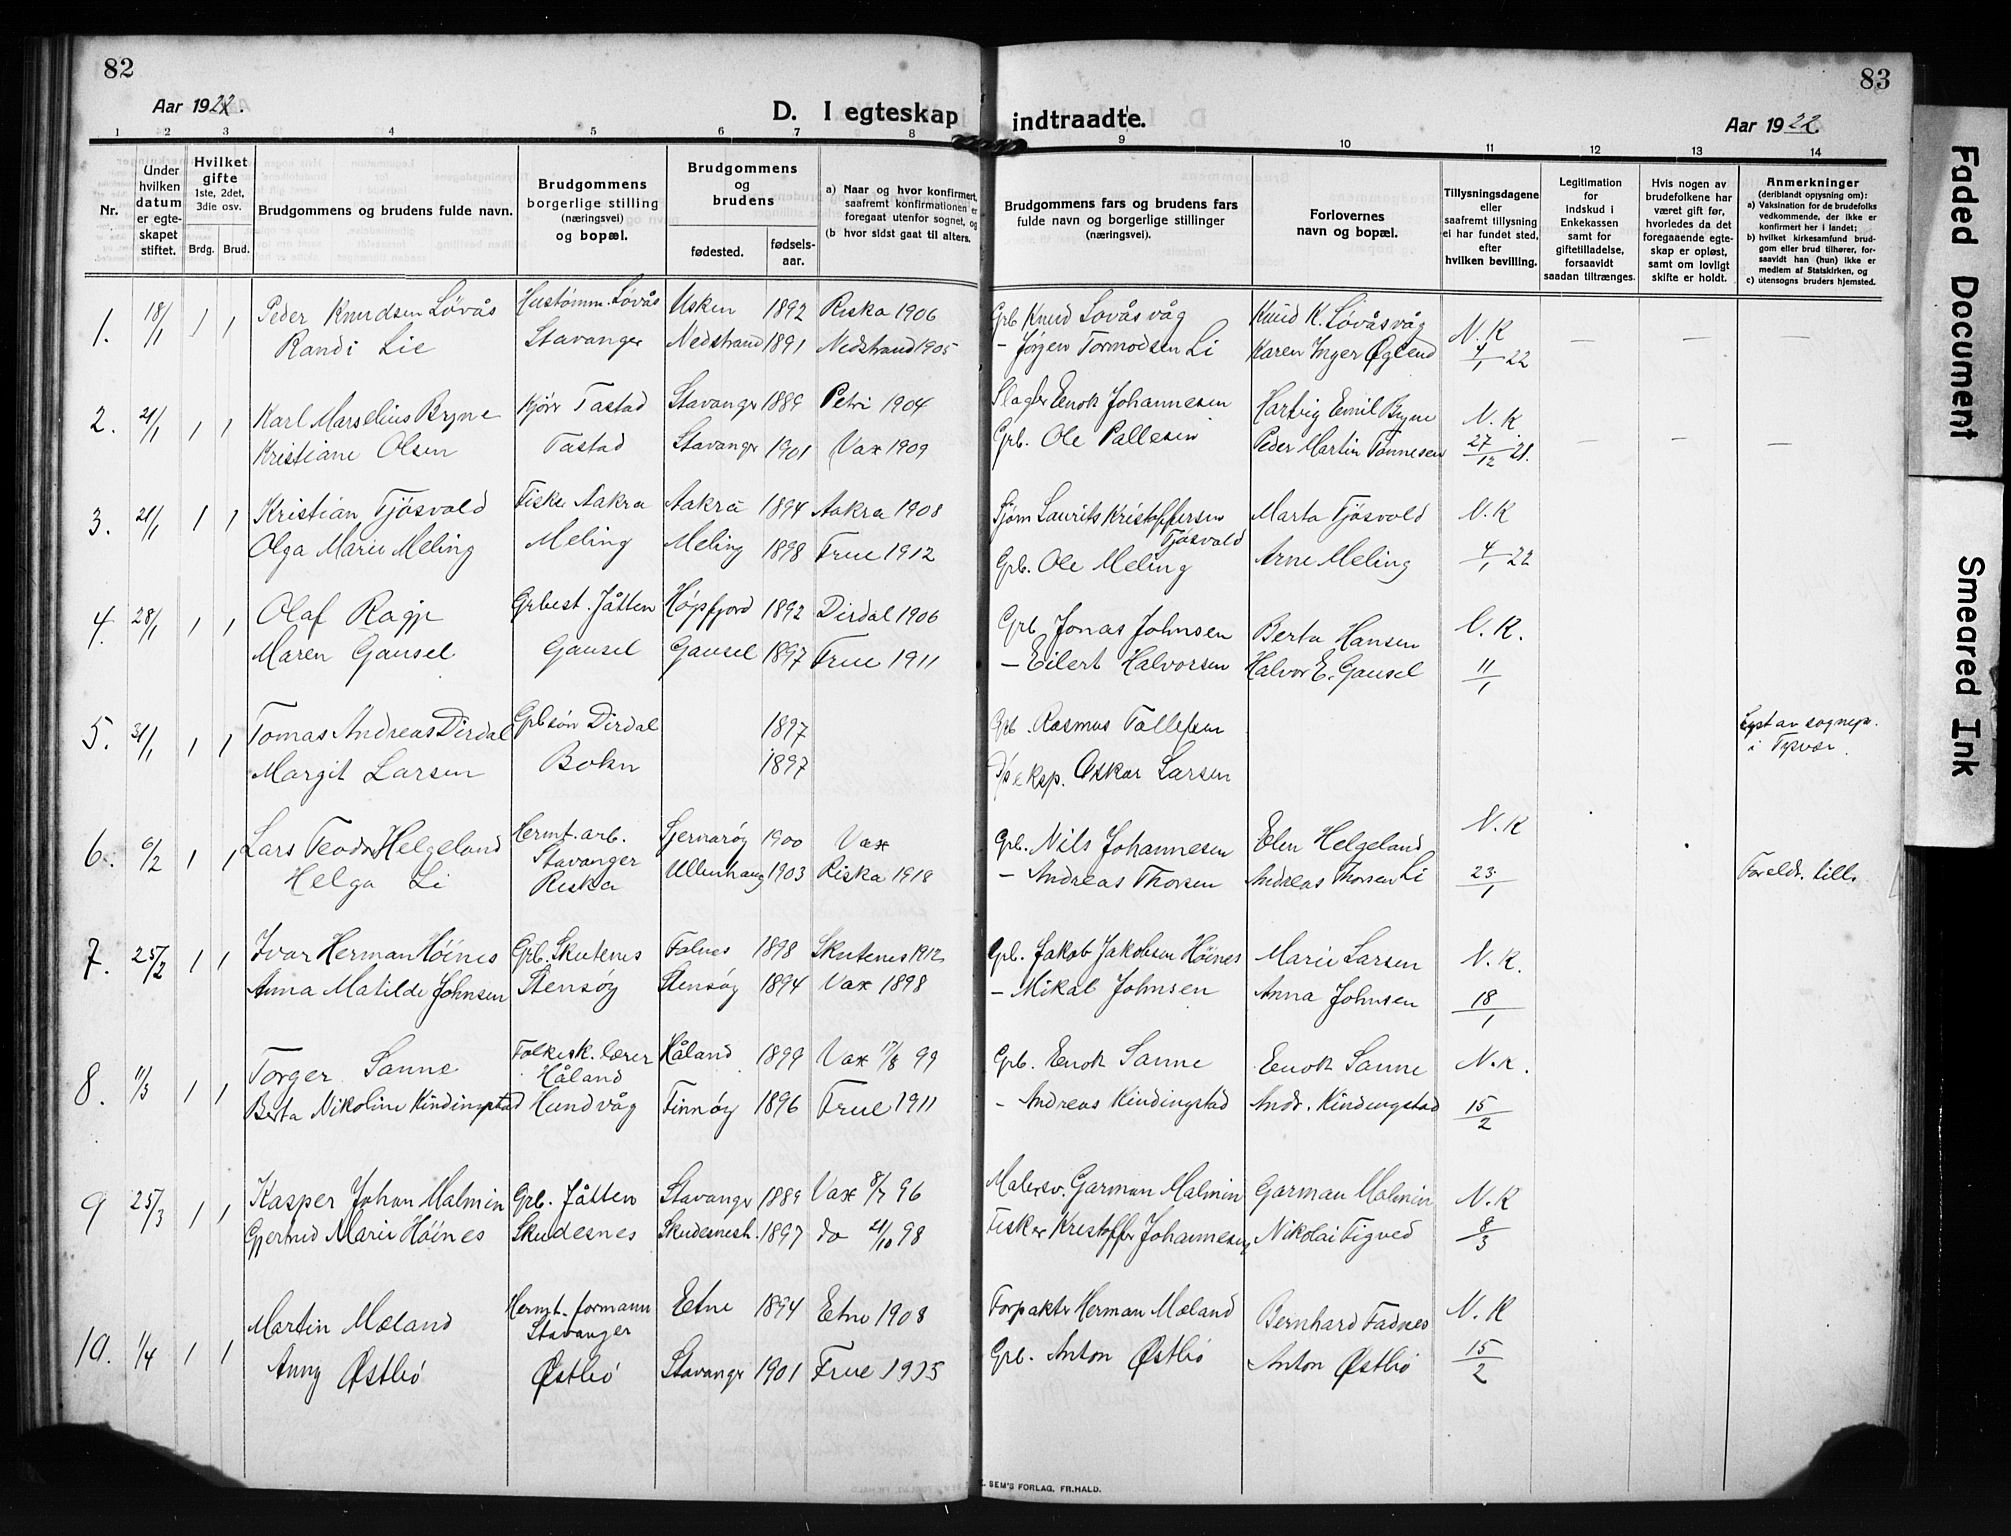 82
Aar 1922.
D. I egteskap
1 2 3 4 5 6 7 8
Nr.
Under hvilken datum er egteskapet stiftet.
Hvilket gifte 1ste, 2det, 3die osv.
Brdg. Brud.
Brudgommens og brudens fulde navn.
Brudgommens borgerlige stilling (næringsvei) og bopæl.
Brudgommens og brudens
fødested. fødselsaar.
a) Naar og hvor konfirmert, saafremt konfirmationen er foregaat utenfor sognet, og
(b hvor sidst gaat til alters.
1. 18/1 1 1 Peder Knudsen Løvås Hustømm. Løvås Usken 1892 Riska 1906
Randi Lie Stavanger Nedstrand 1891 Nedstrand 1905
2. 21/1 1 1 Karl Marselius Bryne Kjørr Tastad Stavanger 1889 Petri 1904
Kristiane Olsen Tastad Stavanger 1901 Vax 1909
3. 21/1 1 1 Kristian Tjøsvold Fisker Aakra Aakra 1894 Aakra 1908
Olga Marie Meling Meling Meling 1898 Frue 1912
4. 28/1 1 1 Olaf Ragje Grbest. Jåtten Høgsfjord 1892 Dirdal 1906
Maren Gausel Gausel Gausel 1897 Frue 1911
5. 31/1 1 1 Tomas Andreas Dirdal Grbsøn Dirdal 1897
Margit Larsen Bokn 1897
6. 6/2 1 1 Lars Teodor Helgeland Hermt. arb. Stavanger Sjernarøy 1900 Vax
Helga Li Riska Ullenhaug 1903 Riska 1918
7. 25/2 1 1 Ivar Herman Høines Grb. Skutenes Falnes 1898 Skutenes 1912
Anna Matilde Johnsen Stensøy Stensøy 1894 Vax 1898
8. 11/3 1 1 Torger Sanne Folkesk. lærer Håland Håland 1899 Vax 17/8 99
Berta Nikoline Kindingstad Hundvåg Finnøy 1896 Frue 1911
9 25/3 1 1 Kasper Johan Malmin Grb. Jåtten Stavanger 1889 Vax 8/7 96
Gjertrud Marie Høines Skudesnes Skudesnesh. 1897 do 21/10 98
10. 1/4 1 1 Martin Mæland Hermt. formann Stavanger Etne 1894 Etne 1908
Anny Østbø Østbø Stavanger 1901 Frue 1915
83
indtraadte.
Aar 1922.
9 10 11 12 13 14
Brudgommens fars og brudens fars fulde navn og borgerlige stillinger (næringsvei).
Forlovernes navn og bopæl.
Tillysningsdagene eller saafremt tillysning ei har fundet sted, efter hvilken bevilling.
Legitimation for Indskud i Enkekassen samt for giftetilladelse, forsaavidt saadan tiltrænges.
Hvis nogen av brudefolkene har været gift før, hvorledes da det foregaaende egteskap er opløst, samt om lovligt skifte er holdt.
Anmerkninger
(deriblandt opysning om):
a) Vaksination for de brudefolks vedkommende, der ikke er konfirmert her i landet;
b) hvilket kirkesamfund brudgom eller brud tilhører, forsaavidt han (hun) ikke er medlem af Statskirken, og
c) utensogns bruders hjemsted.
Grb Knud Løvåsvåg Knud K. Løvåsvåg N. K
- Jørgen Tormodsen Li Karen Inger Øglend 4/1 22 — — —
Slagter Enok Johannesen Hartvig Emil Bryne N. K
Grb. Ole Pallesen Peder Martin Tønnesen 27/12 21. — — —
Sjøm Laurits Kristoffersen Tjøsvold Marta Tjøsvold N. K
Grb. Ole Meling Arne Meling 4/1 22
Grb Jonas Johnsen Berta Hansen N. K.
- Eilert Halvorsen Halvor E. Gausel 11/1
Grb. Rasmus Tollefsen Lyst av sognepr. i Tysvær.
Dpeksp. Oskar Larsen
Grb. Nils Johannesen Elen Helgeland N. K
- Andreas Thorsen Andreas Thorsen Li 23/1 Foreldr. till.
Grb. Jakob Jakobsen Høines Marie Larsen N. K.
- Mikal Johnsen Anna Johnsen 18/1
Grb. Enok Sanne Enok Sanne N. K.
- Andreas Kindingstad Andr. Kindingstad 15/2
Malersv. Garman Malmin Garman Malmin N. K
Fisker Kristoffer Johannesen Nikolai Tigved 8/3
Forpakter Herman Mæland Bernhard Fadnes N. K
Grb. Anton Østbø Anton Østbø 15/2
SEM'S FORLAG, FR.HALD.
Faded Document
Smeared Ink